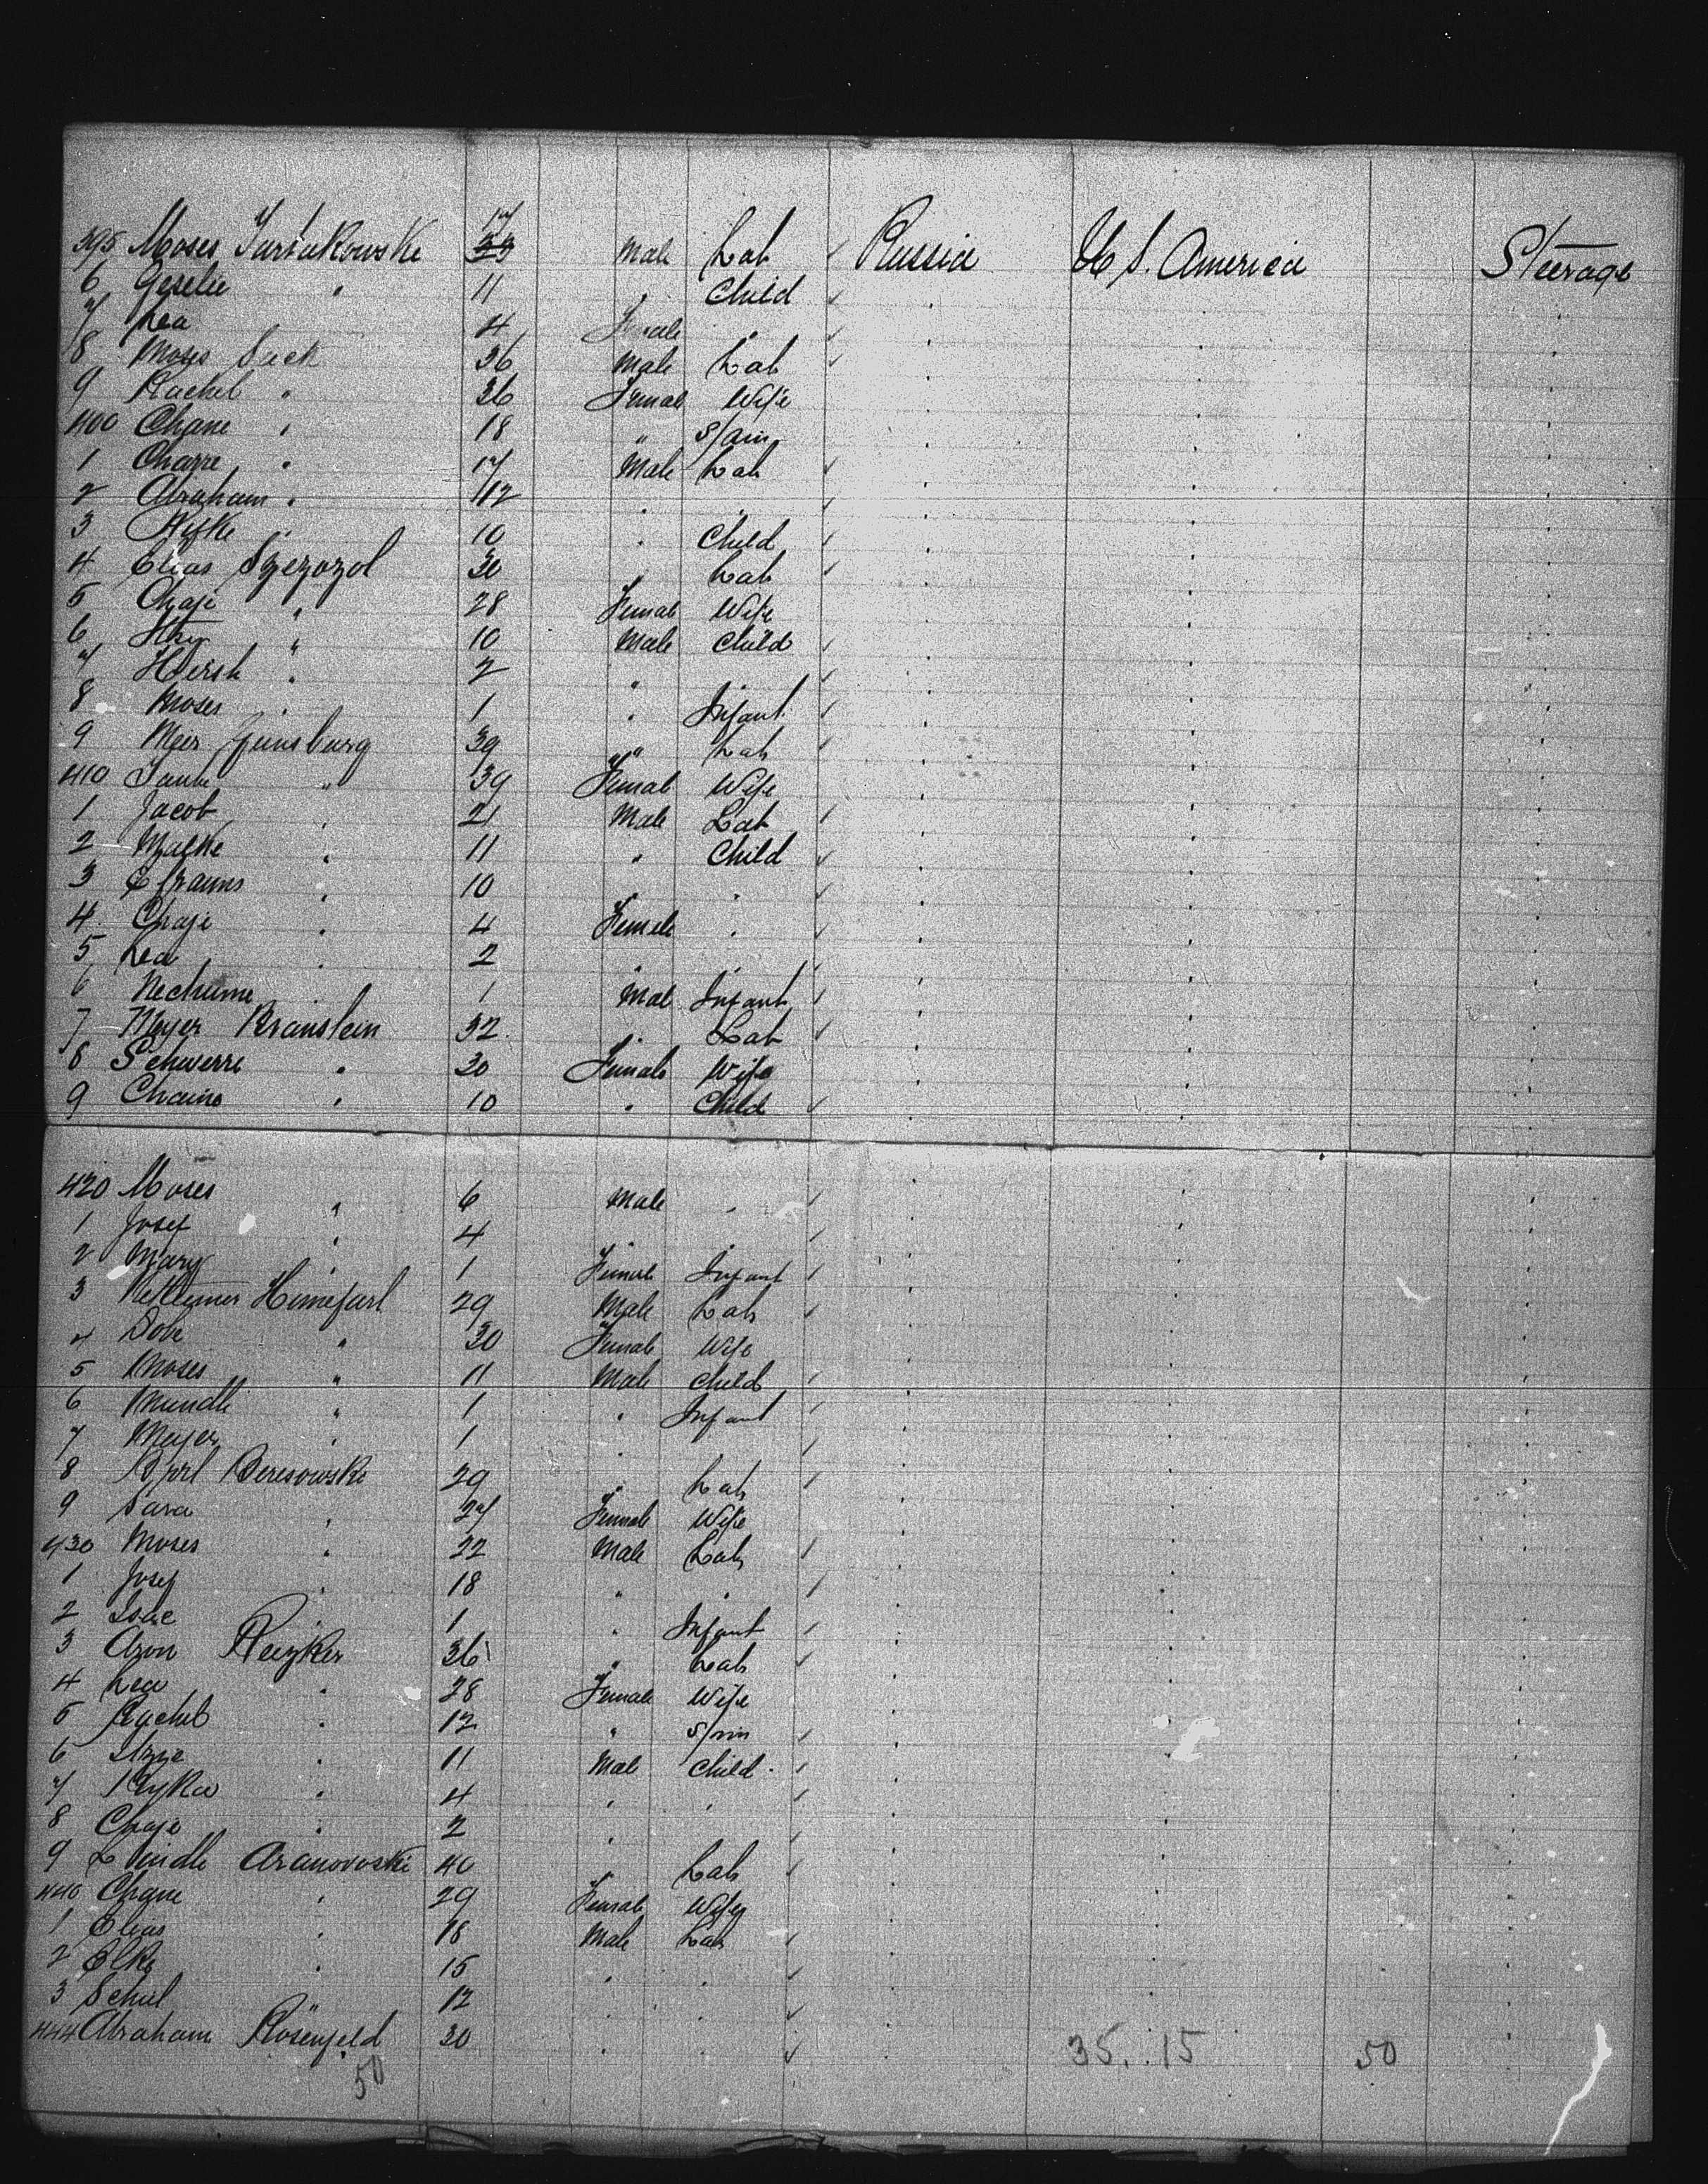 395 Moses Tartakowske 17 23 Male Lab ✓ Russia U S. America Steerage
6 Geselie " 11 " Child ✓ " " "
7 Lea 4 Female " ✓ " " "
8 Moses Seck 36 Male Lab ✓ " " "
9 Rachel " 36 Female Wife " " "
400 Chane " 18 " Spin " " "
1 " 17 Male Lab ✓ " " "
2 Abraham " 12 " " ✓ " " "
3 " 10 " Child ✓ " " "
4 Elias Szezozol 30 " Lab ✓ " " "
5 Chaje " 28 Female Wife " " "
6 " 10 Male Child ✓ " " "
7 Hersh " 2 " " ✓ " " "
8 Moses " 1 " Infant ✓ " " "
9 Meer Gunsburg 39 " Lab ✓ " " "
410 Taube " 39 Female Wife " " "
1 Jacob " 21 Male Lab ✓ " " "
2 Malke " 11 " Child ✓ " " "
3 Efraims " 10 " " ✓ " " "
4 Chaje " 4 Female " ✓ " " "
5 Lea " 2 " " ✓ " " "
6 Nechume " 1 Male Infant ✓ " " "
7 Meyer Branslein 32 " Lab ✓ " " "
8 Schwerre " 30 Female Wife " " "
9 Chaine " 10 " Child ✓ " " "
420 Moses " 6 Male " ✓ " " "
1 Josef " 4 " " ✓ " " "
2 Mary " 1 Female Infant ✓ " " "
3 Himefarl 29 Male Lab ✓ " " "
4 Dobe " 30 Female Wife " " "
5 Moses " 11 Male Child ✓ " " "
6 Mundle " 1 " Infant ✓ " " "
7 Meyer " 1 " " ✓ " " "
8 Beresowske 29 " Lab ✓ " " "
9 Sara " 27 Female Wife " " "
430 Moses " 22 Male Lab ✓ " " "
1 Josef " 18 " " ✓ " " "
2 Isac " 1 " Infant ✓ " " "
3 Aron Reizker 36 " Lab ✓ " " "
4 Lea " 28 Female Wife " " "
5 Rachel " 12 " Spin ✓ " " "
6 " 11 Male Child ✓ " " "
7 " 4 " " ✓ " " "
8 Chaje " 2 " " ✓ " " "
9 Aranowski 40 " Lab ✓ " " "
440 Chane " 29 Female Wife " " "
1 Elias " 18 Male Lab ✓ " " "
2 Elke " 15 " " ✓ " " "
3 Schul " 12 " " ✓ " " "
444 Abraham Rosenfeld 30 " " ✓ " " "
50 35. 15 50